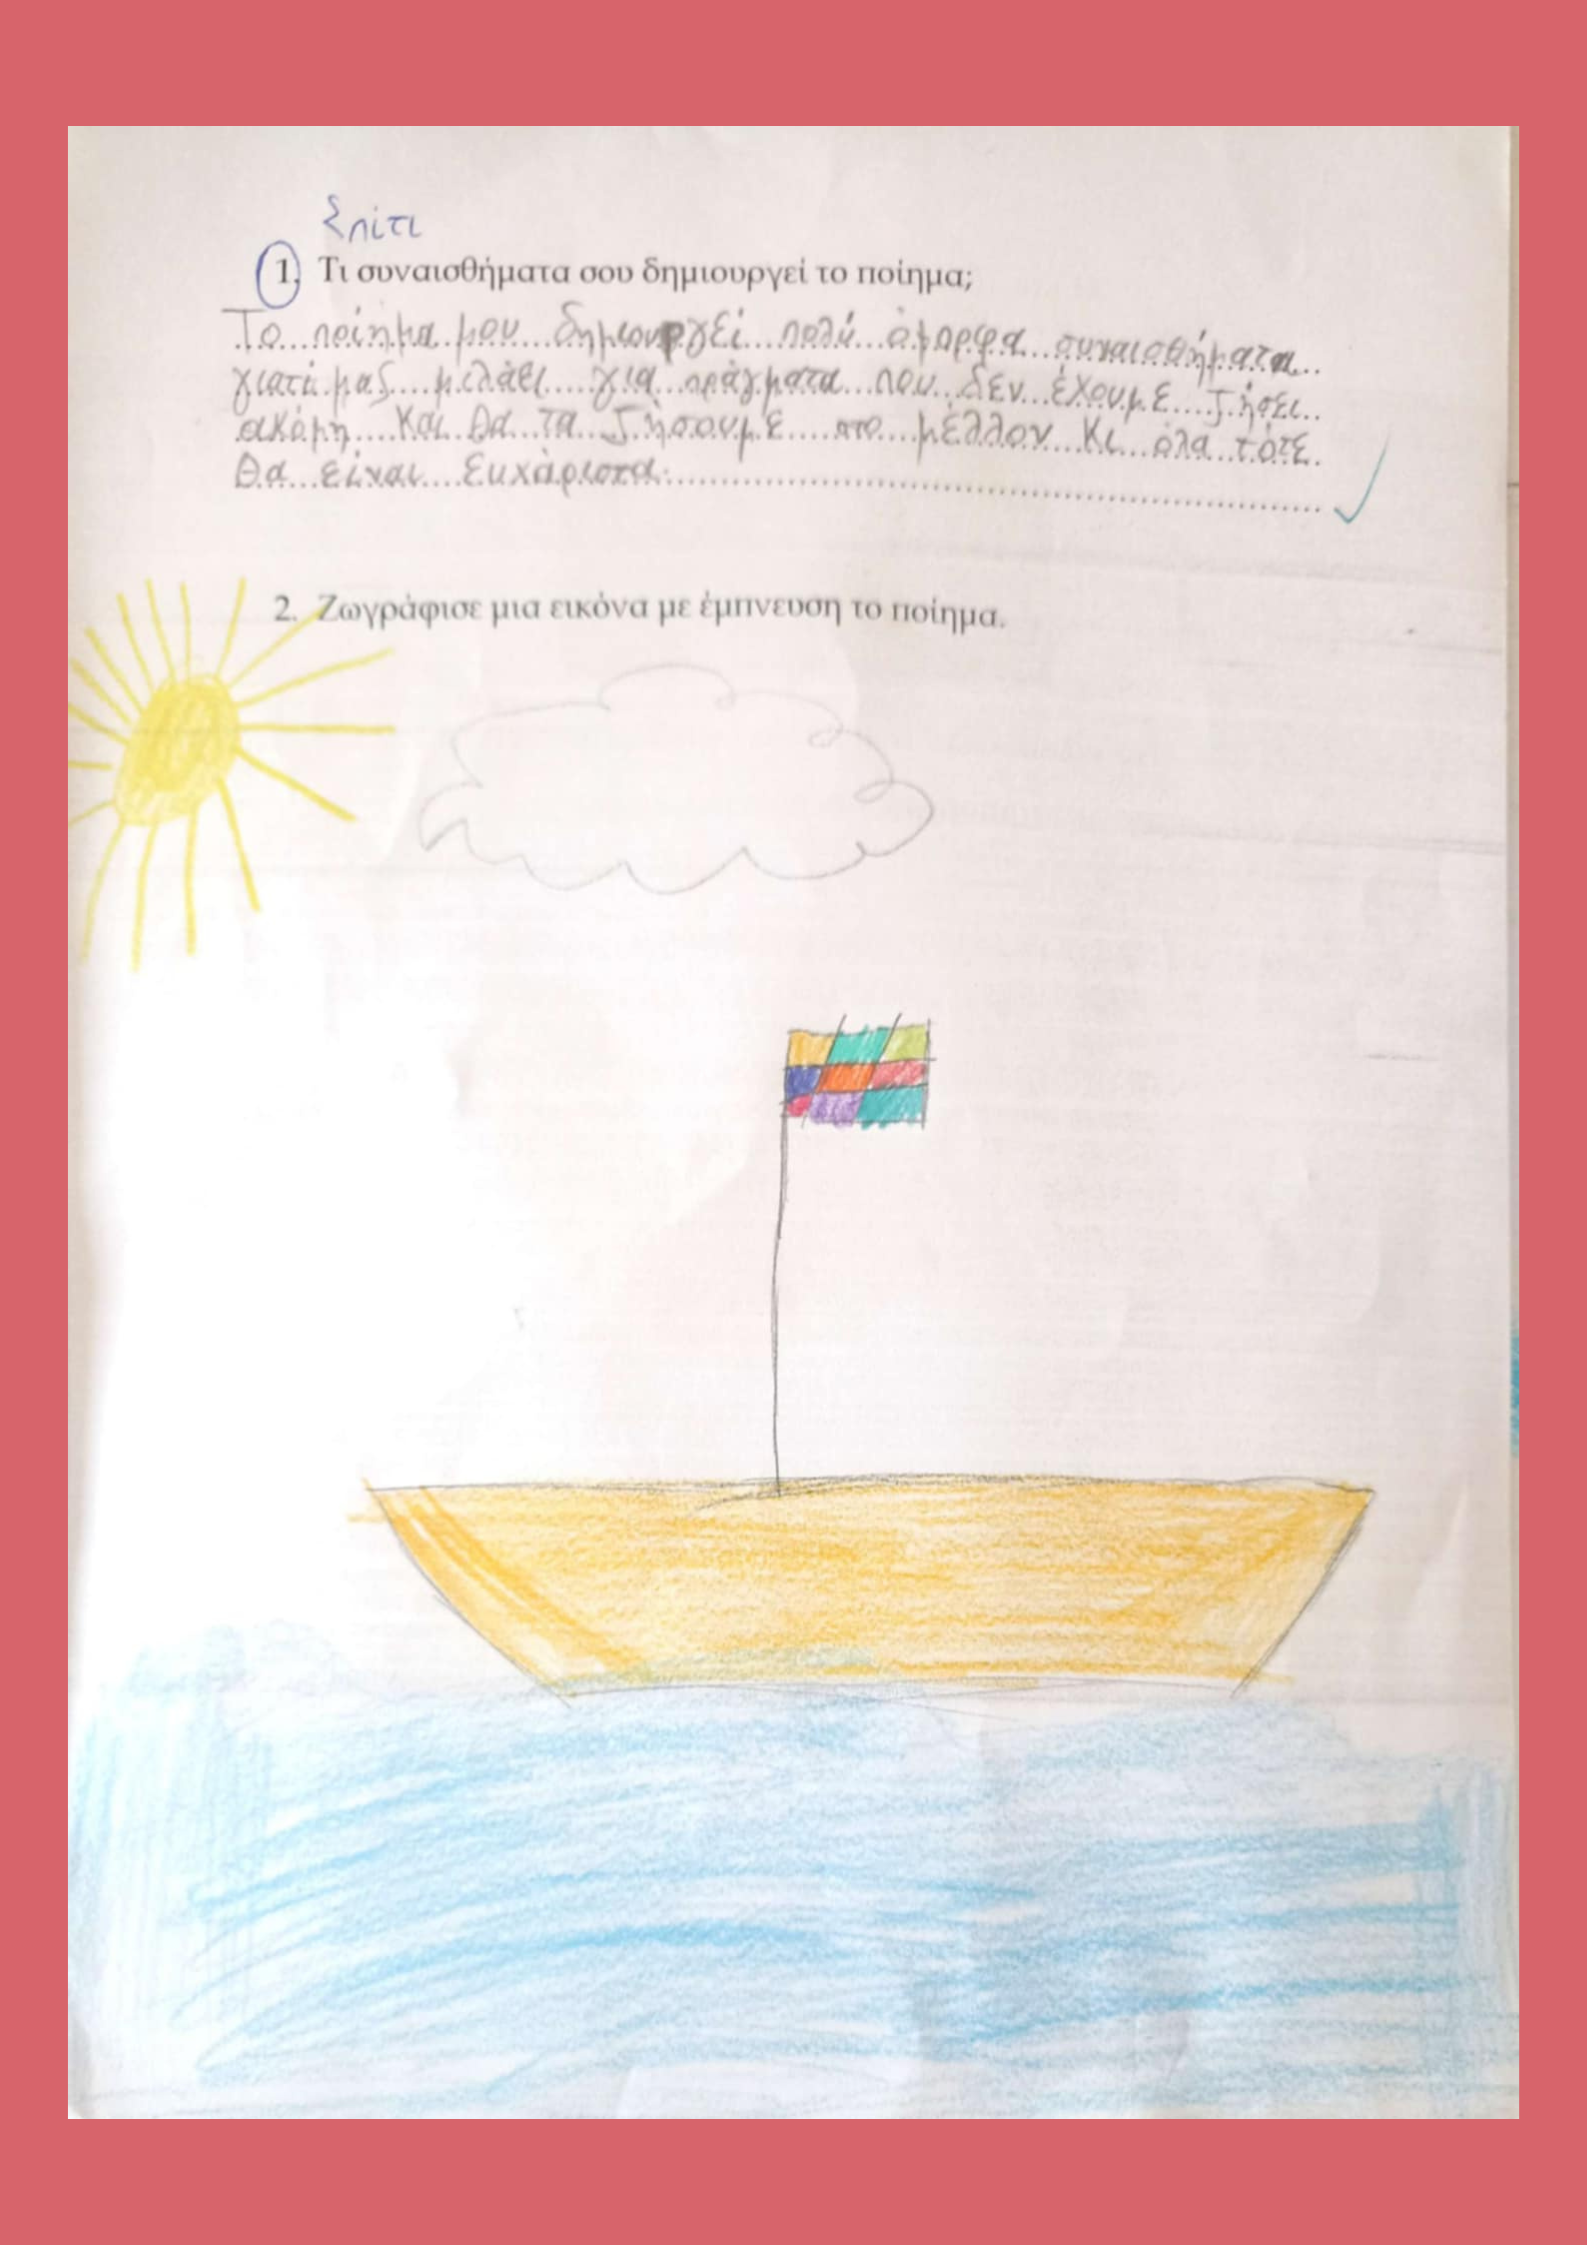 Σπίτι
1. Τι συναισθήματα σου δημιουργεί το ποίημα;
Το ποίημα μου δημιουργεί πολύ όμορφα συναισθήματα
γιατί μας μιλάει για πράγματα που δεν έχουμε ζήσει
ακόμη και θα τα ζήσουμε στο μέλλον κι όλα τότε
θα είναι ευχάριστα.
2. Ζωγράφισε μια εικόνα με έμπνευση το ποίημα.